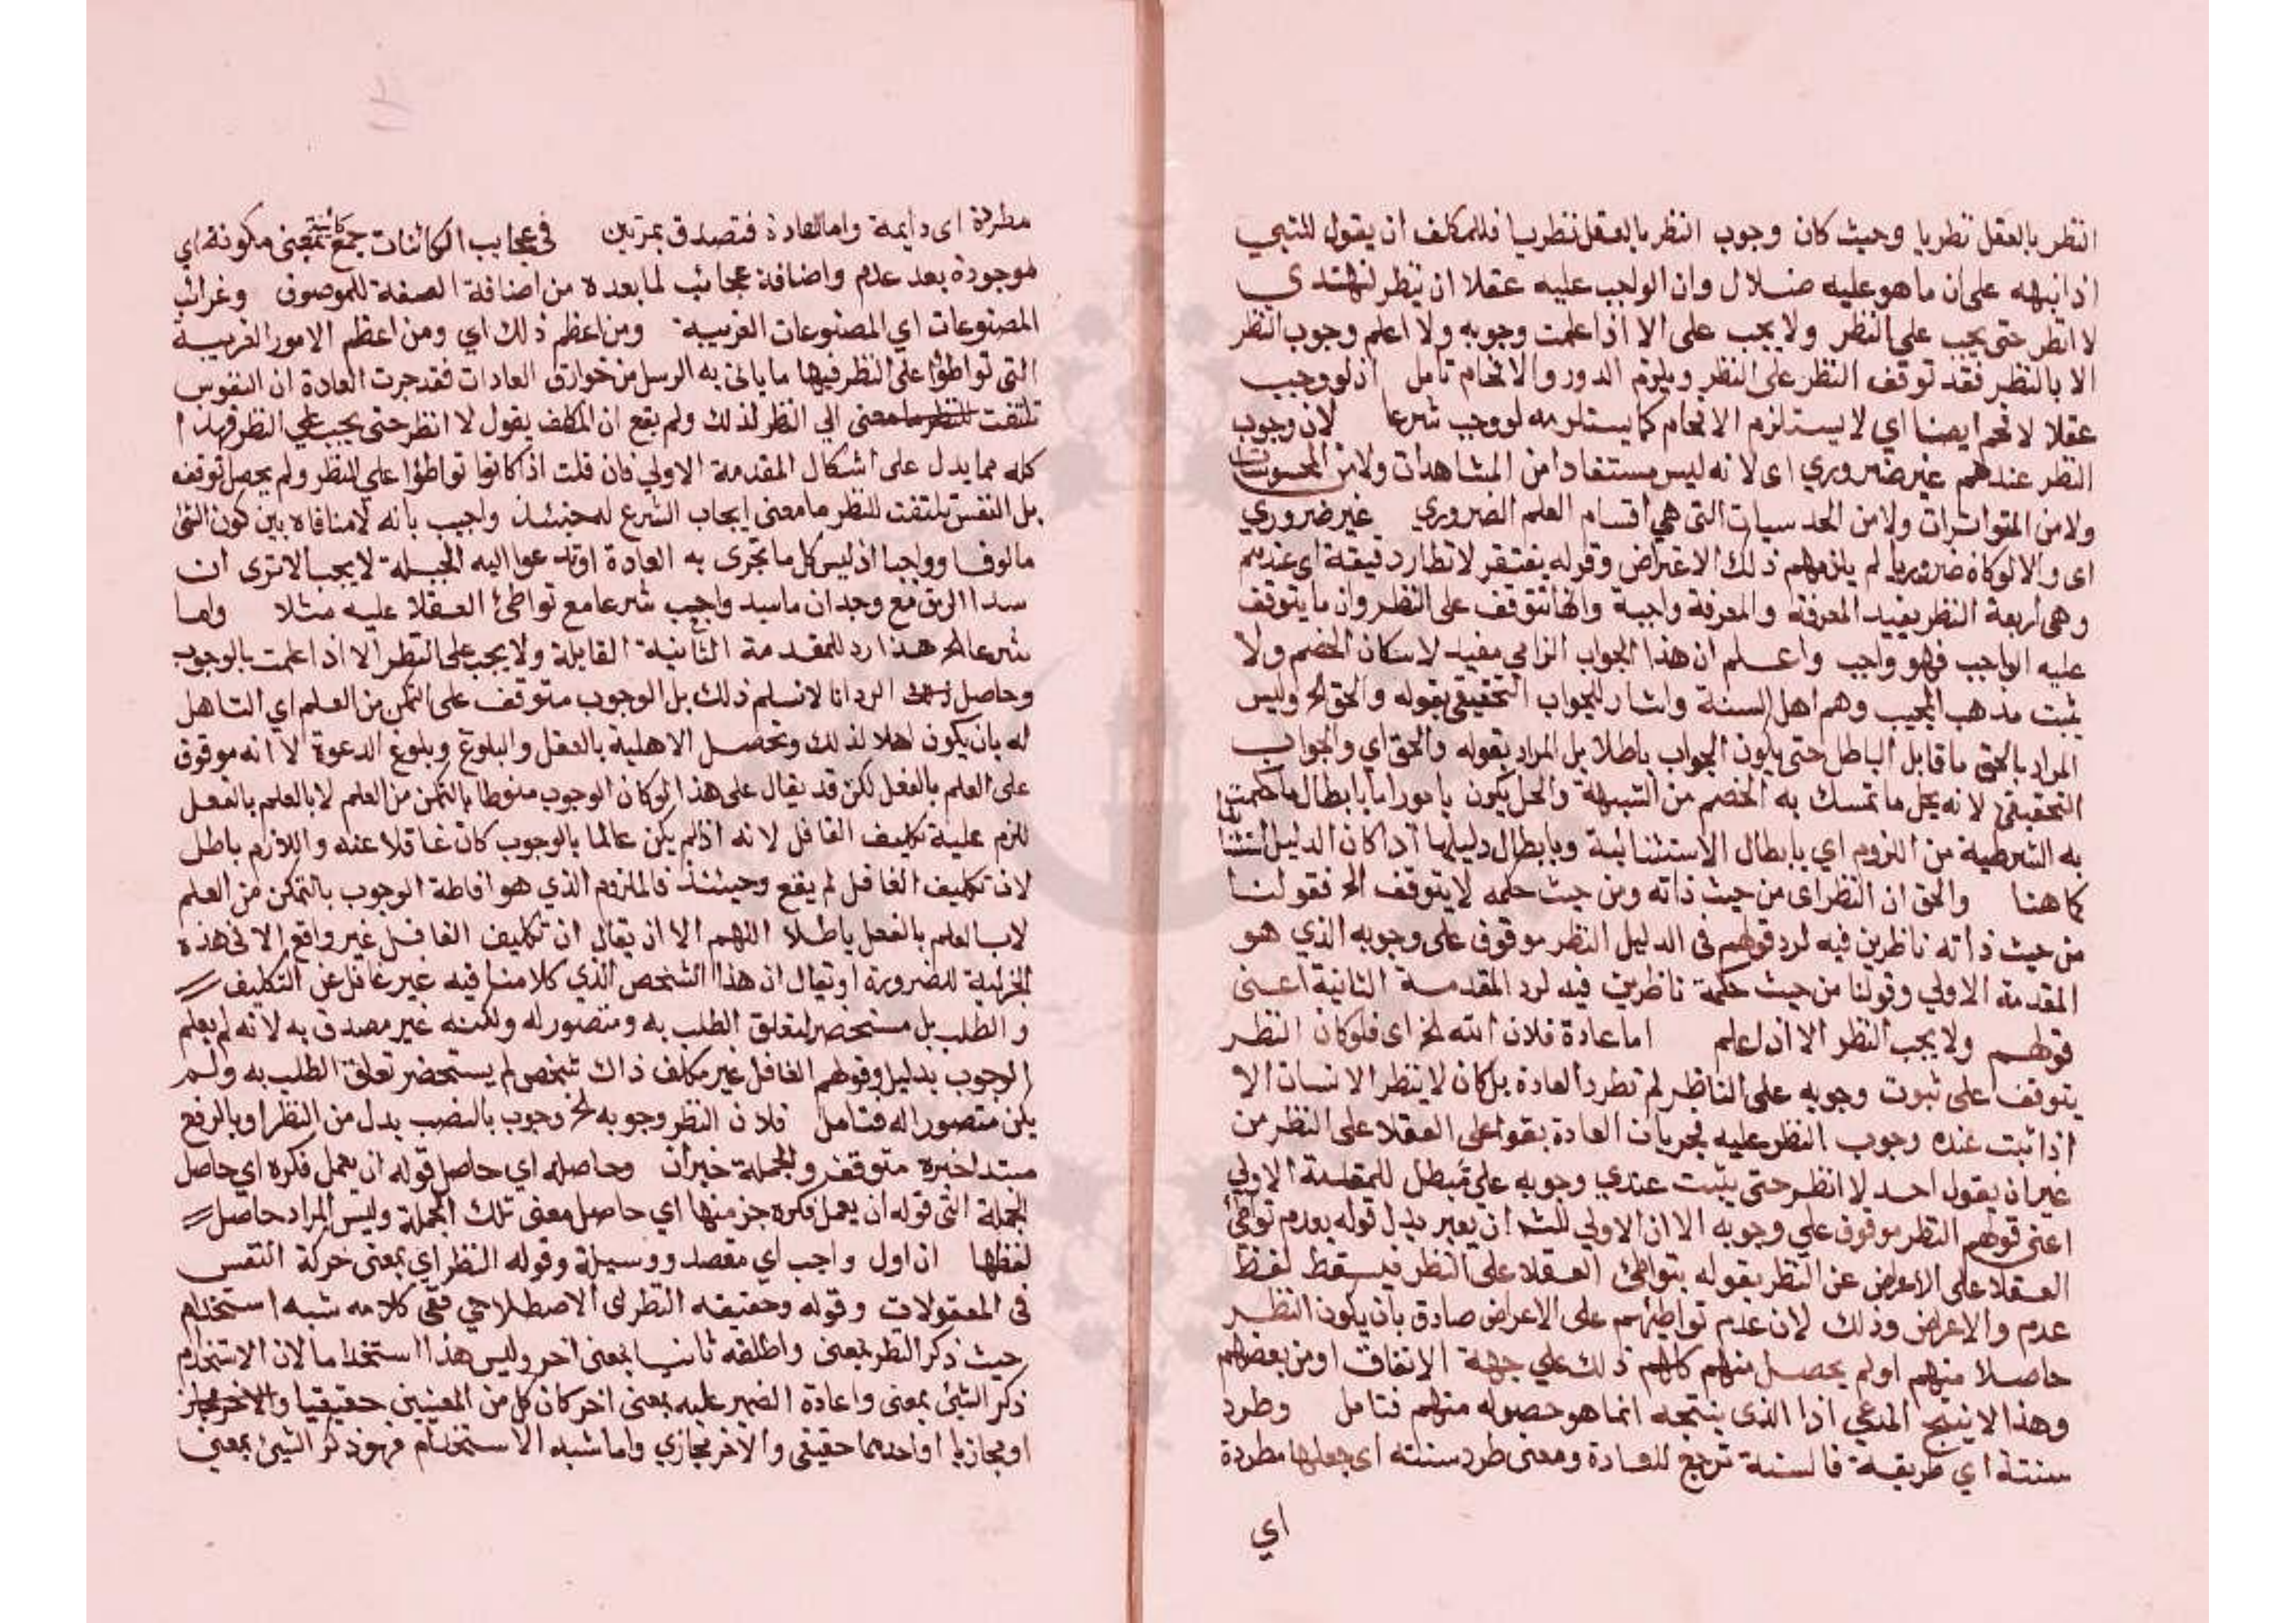 النظر بالعقل نظريا وحيث كان وجوب النظر بالعقل نظريا فللمكلف ان يقول للنبي
اذا نبهه على ان ما هو عليه ضلال وان الواجب عليه عقلا ان ينظر لتهتدي
لا انظر حتى يجب على النظر ولا يجب على الا اذا علمت وجوبه ولا اعلم وجوب النظر
الا بالنظر فقد توقف النظر على النظر ويلزم الدور والافحام تامل اذ لو وجب
عقلا لافحم ايضا اي لا يستلزم الافحام كما يستلزمه لو وجب شرعا لان وجوب
النظر عندهم غير ضروري اى لانه ليس مستفادا من المشاهدات ولا من المحسوسات
ولا من المتواترات ولا من الحدسيات التى هي اقسام العلم الضروري غير ضروري
اى والا لو كان ضروريا لم يلزمهم ذلك الاعتراض وقوله يفتقر لانظار دقيقة اى عندهم
وهى اربعة النظر يفيد المعرفة والمعرفة واجبة وانها تتوقف على النظر وان ما يتوقف
عليه الواجب فهو واجب واعلم ان هذا الجواب الزامي مفيد لاسكان الخصم ولا
يثبت مذهب المجيب وهم اهل السنة واشار للجواب التحقيقي بقوله والحق الخ وليس
المراد بالحق ما قابل الباطل حتى يكون الجواب باطلا بل المراد بقوله والحق اي والجواب
التحقيقي لانه يحل ما تمسك به الخصم من الشبهة والحل يكون بامور اما بابطال ما حكمت
به الشرطية من اللزوم اي بابطال الاستثنائية وبابطال دليلها اذا كان الدليل استثنا
كما هنا والحق ان النظر اى من حيث ذاته ومن حيث حكمه لا يتوقف الخ فقولنا
من حيث ذاته ناظرين فيه لرد قولهم فى الدليل النظر موقوف على وجوبه الذي هو
المقدمة الاولي وقولنا من حيث حكمة ناظرين فيه لرد المقدمة الثانية اعنى
قولهم ولا يجب النظر الا ان اعلم اما عادة فلان الله الخ اى فلو كان النظر
يتوقف على ثبوت وجوبه على الناظر لم تطرد العادة بل كان لا ينظر الانسان الا
اذا ثبت عنده وجوب النظر عليه فجريان العادة بتواطى العقلا على النظر من
غير ان يقول احد لا انظر حتى يثبت عندي وجوبه علي مبطل للمقدمة الاولي
اعنى قولهم النظر موقوف على وجوبه الا ان الاولي للش ان يعبر بدل قوله بعدم تواطئ
العقلا على الاعراض عن النظر بقوله بتواطئ العقلا على النظر فيسقط لفظ
عدم والاعراض وذلك لان عدم تواطئهم على الاعراض صادق بان يكون النظر
حاصلا منهم او لم يحصل منهم كلهم ذلك علي جهة الاتفاق او من بعضهم
وهذا لا ينتج المدعي اذا الذى ينتجه انما هو حصوله منهم فتامل وطرد
سنته اي طريقة فالسنة ترجع للعادة ومعنى طرد سنته اى جعلها مطردة
اي
مطردة اى دايمة واما العادة فتصدق بمرتين فى عجايب الكائنات جمع كائنة بمعنى مكونة اي
موجودة بعد عدم واضافة عجائب لما بعده من اضافة الصفة للموصوف وغرائب
المصنوعات اي المصنوعات الغريبة ومن اعظم ذلك اي ومن اعظم الامور الغريبة
التى تواطؤا على النظر فيها ما ياتى به الرسل من خوارق العادات فقد جرت العادة ان النفوس
تلتفت الي النظر لذلك ولم يقع ان المكلف يقول لا انظر حتى يجب علي النظر فهذا
كله مما يدل على اشكال المقدمة الاولي فان قلت اذا كانوا تواطؤا على النظر ولم يحصل توقف
بل النفس تلتفت للنظر ما معنى ايجاب الشرع له حينئذ واجيب بانه لا منافاه بين كون الشئ
مالوفا وواجبا اذ ليس كل ما تجرى به العادة او تدعوا اليه الجبلة لا يجب الا ترى ان
سد الرمق مع وجدان ما سيد واجب شرعا مع تواطئ العقلا عليه مثلا واما
شرعا الخ هذا رد للمقدمة الثانية القايلة ولا يجب على النظر الا اذا علمت بالوجوب
وحاصل الرد انا لا نسلم ذلك بل الوجوب متوقف على التمكن من العلم اي التاهل
له بان يكون اهلا لذلك وتحصل الاهلية بالعقل والبلوغ وبلوغ الدعوة لا انه موقوف
على العلم بالفعل لكن قد يقال على هذا لو كان الوجوب منوطا بالتمكن من العلم لا بالعلم بالفعل
للزم عليه تكليف الغافل لانه اذا لم يكن عالما بالوجوب كان غافلا عنه واللازم باطل
لان تكليف الغافل لم يقع وحينئذ فالملزوم الذي هو اناطة الوجوب بالتمكن من العلم
لا بالعلم بالفعل باطلا اللهم الا ان يقال ان تكليف الغافل غير واقع الا فى هذه
الجزئية للضرورة او يقال ان هذا الشخص الذي كلامنا فيه غير غافل عن التكليف
والطلب بل مستحضر لتعلق الطلب به ومتصور له ولكنه غير مصدق به لانه لم يعلم
الوجوب بدليل وقولهم الغافل غير مكلف ذاك شخص لم يستحضر تعلق الطلب به ولم
يكن متصورا له فتامل فلان النظر وجوبه الخ وجوب بالنصب بدل من النظر او بالرفع
مبتدا خبره متوقف والجملة خبر ان وحاصله اي حاصل قوله ان يعمل فكره اي حاصل
الجملة التى قوله ان يعمل فكره جز منها اي حاصل معنى تلك الجملة وليس المراد حاصل
لفظها ان اول واجب اي مقصد ووسيلة وقوله النظر اي بمعنى حركة النفس
فى المعقولات وقوله وحقيقه النظر اى الاصطلاحي ففى كلامه شبه استخدام
حيث ذكر النظر بمعنى واطلقه ثانيا بمعنى اخر وليس هذا استخداما لان الاستخدام
ذكر الشئ بمعنى واعادة الضمير عليه بمعنى اخر كان كل من المعنيين حقيقيا
او مجازيا او احدهما حقيقى والآخر مجازي واما شبه الاستخدام فهو ذكر الشئ بمعنى